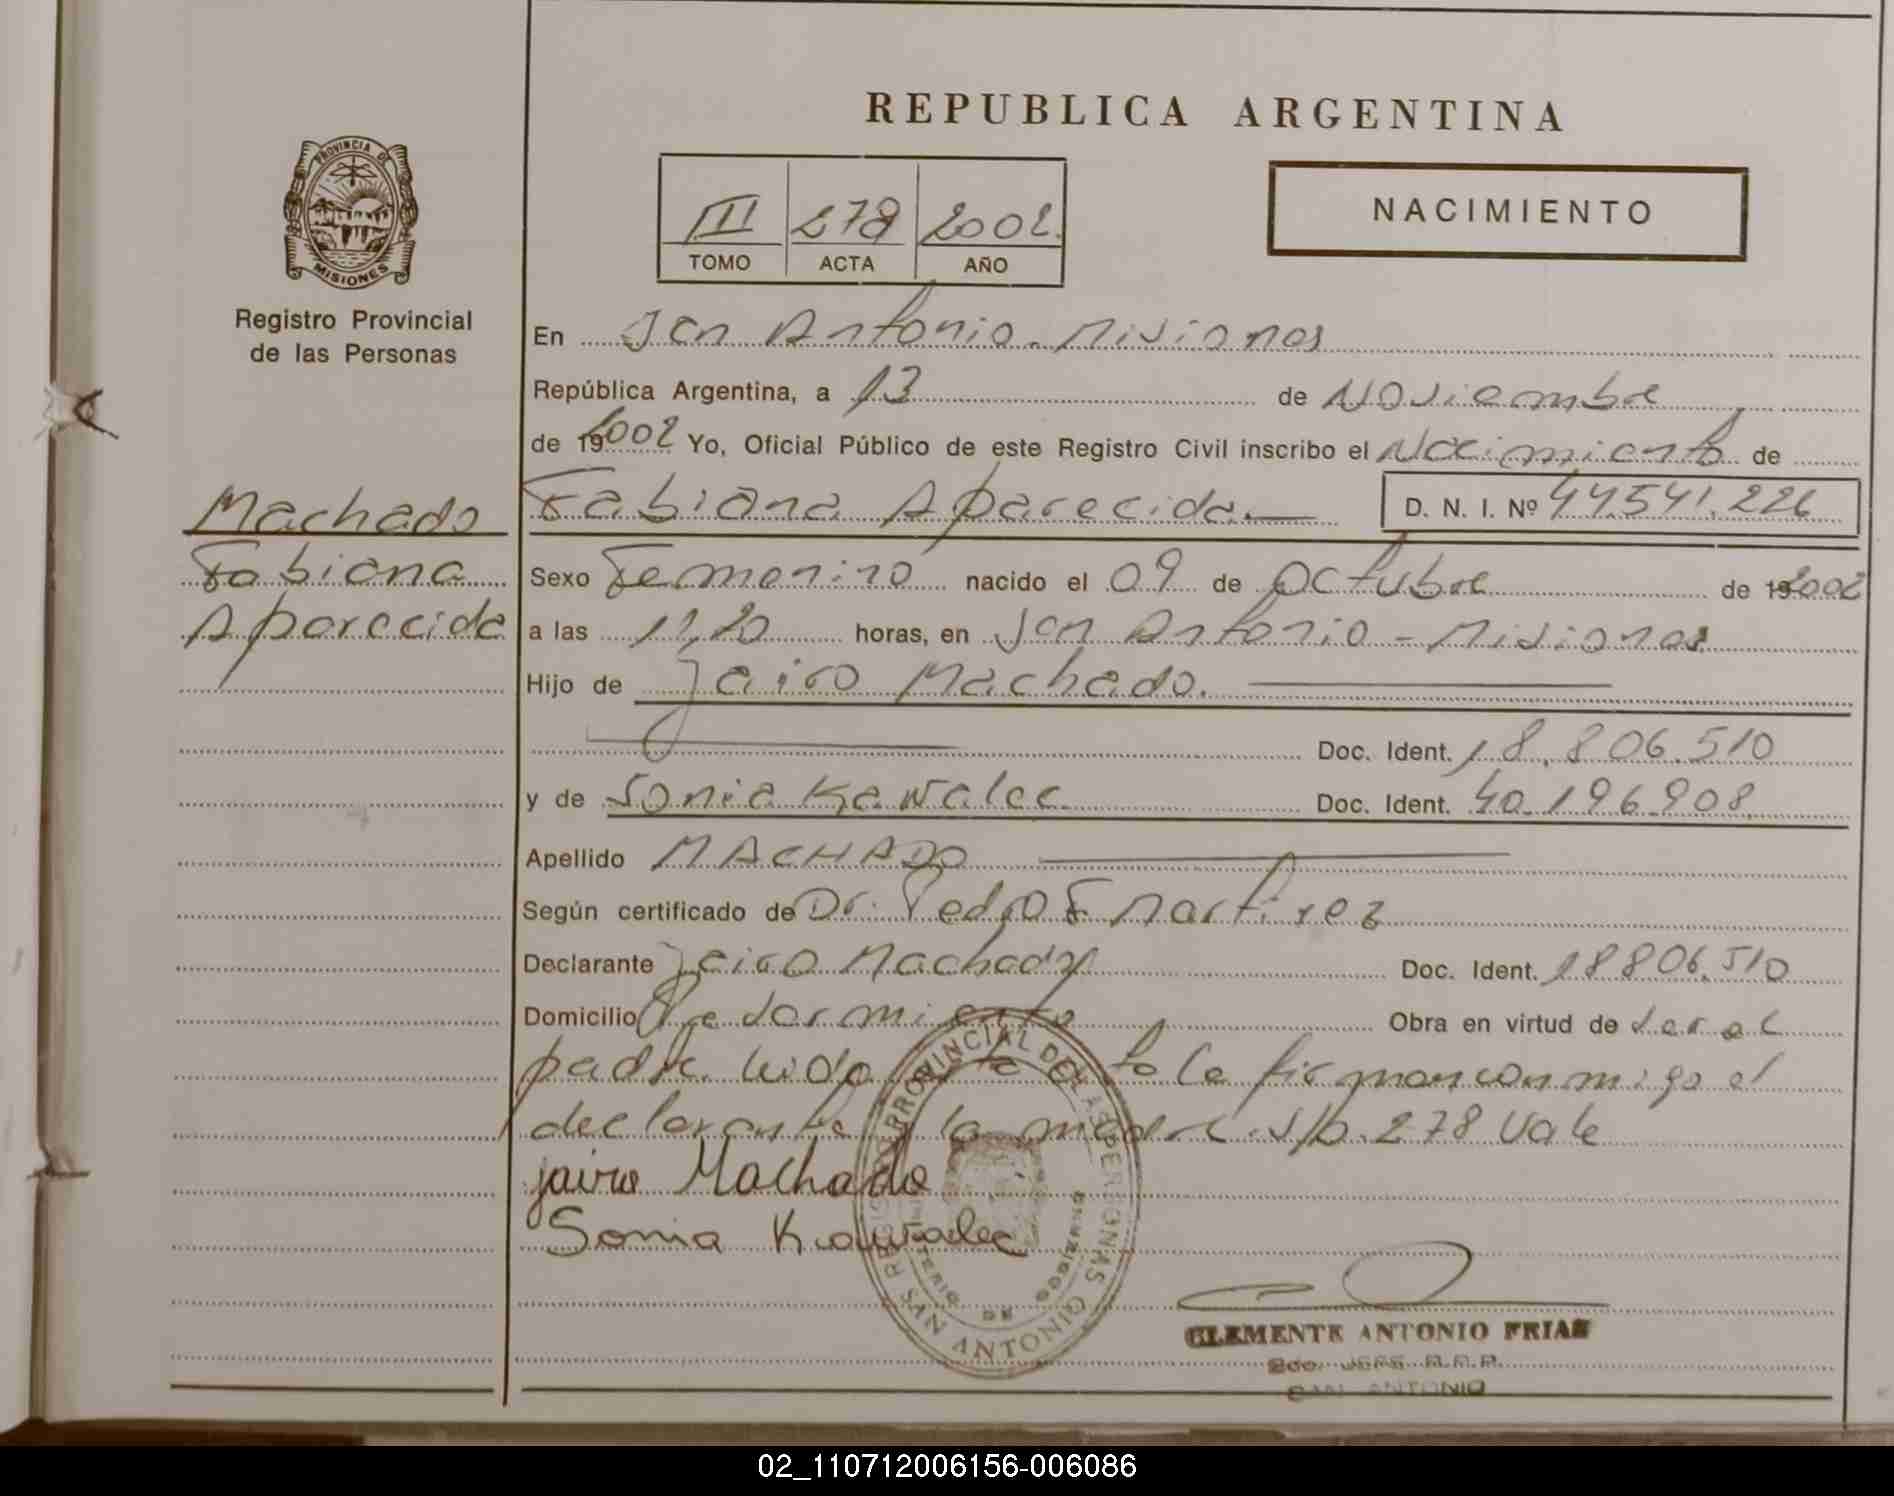 REPUBLICA ARGENTINA
PROVINCIA DE
MISIONES
Registro Provincial
de las Personas
III 278 2002
TOMO ACTA AÑO
NACIMIENTO
En San Antonio - Misiones
República Argentina, a 13 de Noviembre
de 19 2002 Yo, Oficial Público de este Registro Civil inscribo el Nacimiento de
Machado
Fabiana Aparecida D. N. I. Nº 44.541.226
Fabiana
Aparecida
Sexo Femenino nacido el 09 de Octubre de 19 2002
a las 11,20 horas, en San Antonio - Misiones
Hijo de Jairo Machado.
Doc. Ident. 18.806.510
y de Sonia Kawalec Doc. Ident. 40.196.908
Apellido MACHADO
Según certificado de Dr. Pedro E Martinez
Declarante Jairo Machado Doc. Ident. 18806.510
Domicilio Obra en virtud de ser el
padre leida acta la firman conmigo el
declarante y la madre s/b. 278 Vale
jairo Machado
Sonia Kawalec
REGISTRO PROVINCIAL DE LAS PERSONAS
MINISTERIO DE GOBIERNO
SAN ANTONIO
CLEMENTE ANTONIO FRIAS
2do. JEFE R.P.P.
SAN ANTONIO
02_110712006156-006086